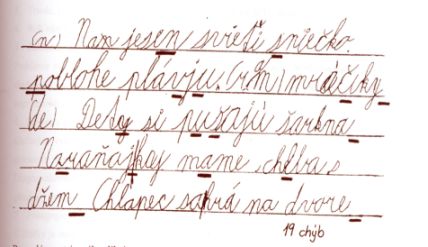 (n) Nam jesen svieti snječko.
noblohe plávju. (rm) mráčiky
(de) Dety si pušajú šarkna
Naraňajkay mame chleba s
džem Chlapec sahrá na dvore
19 chýb